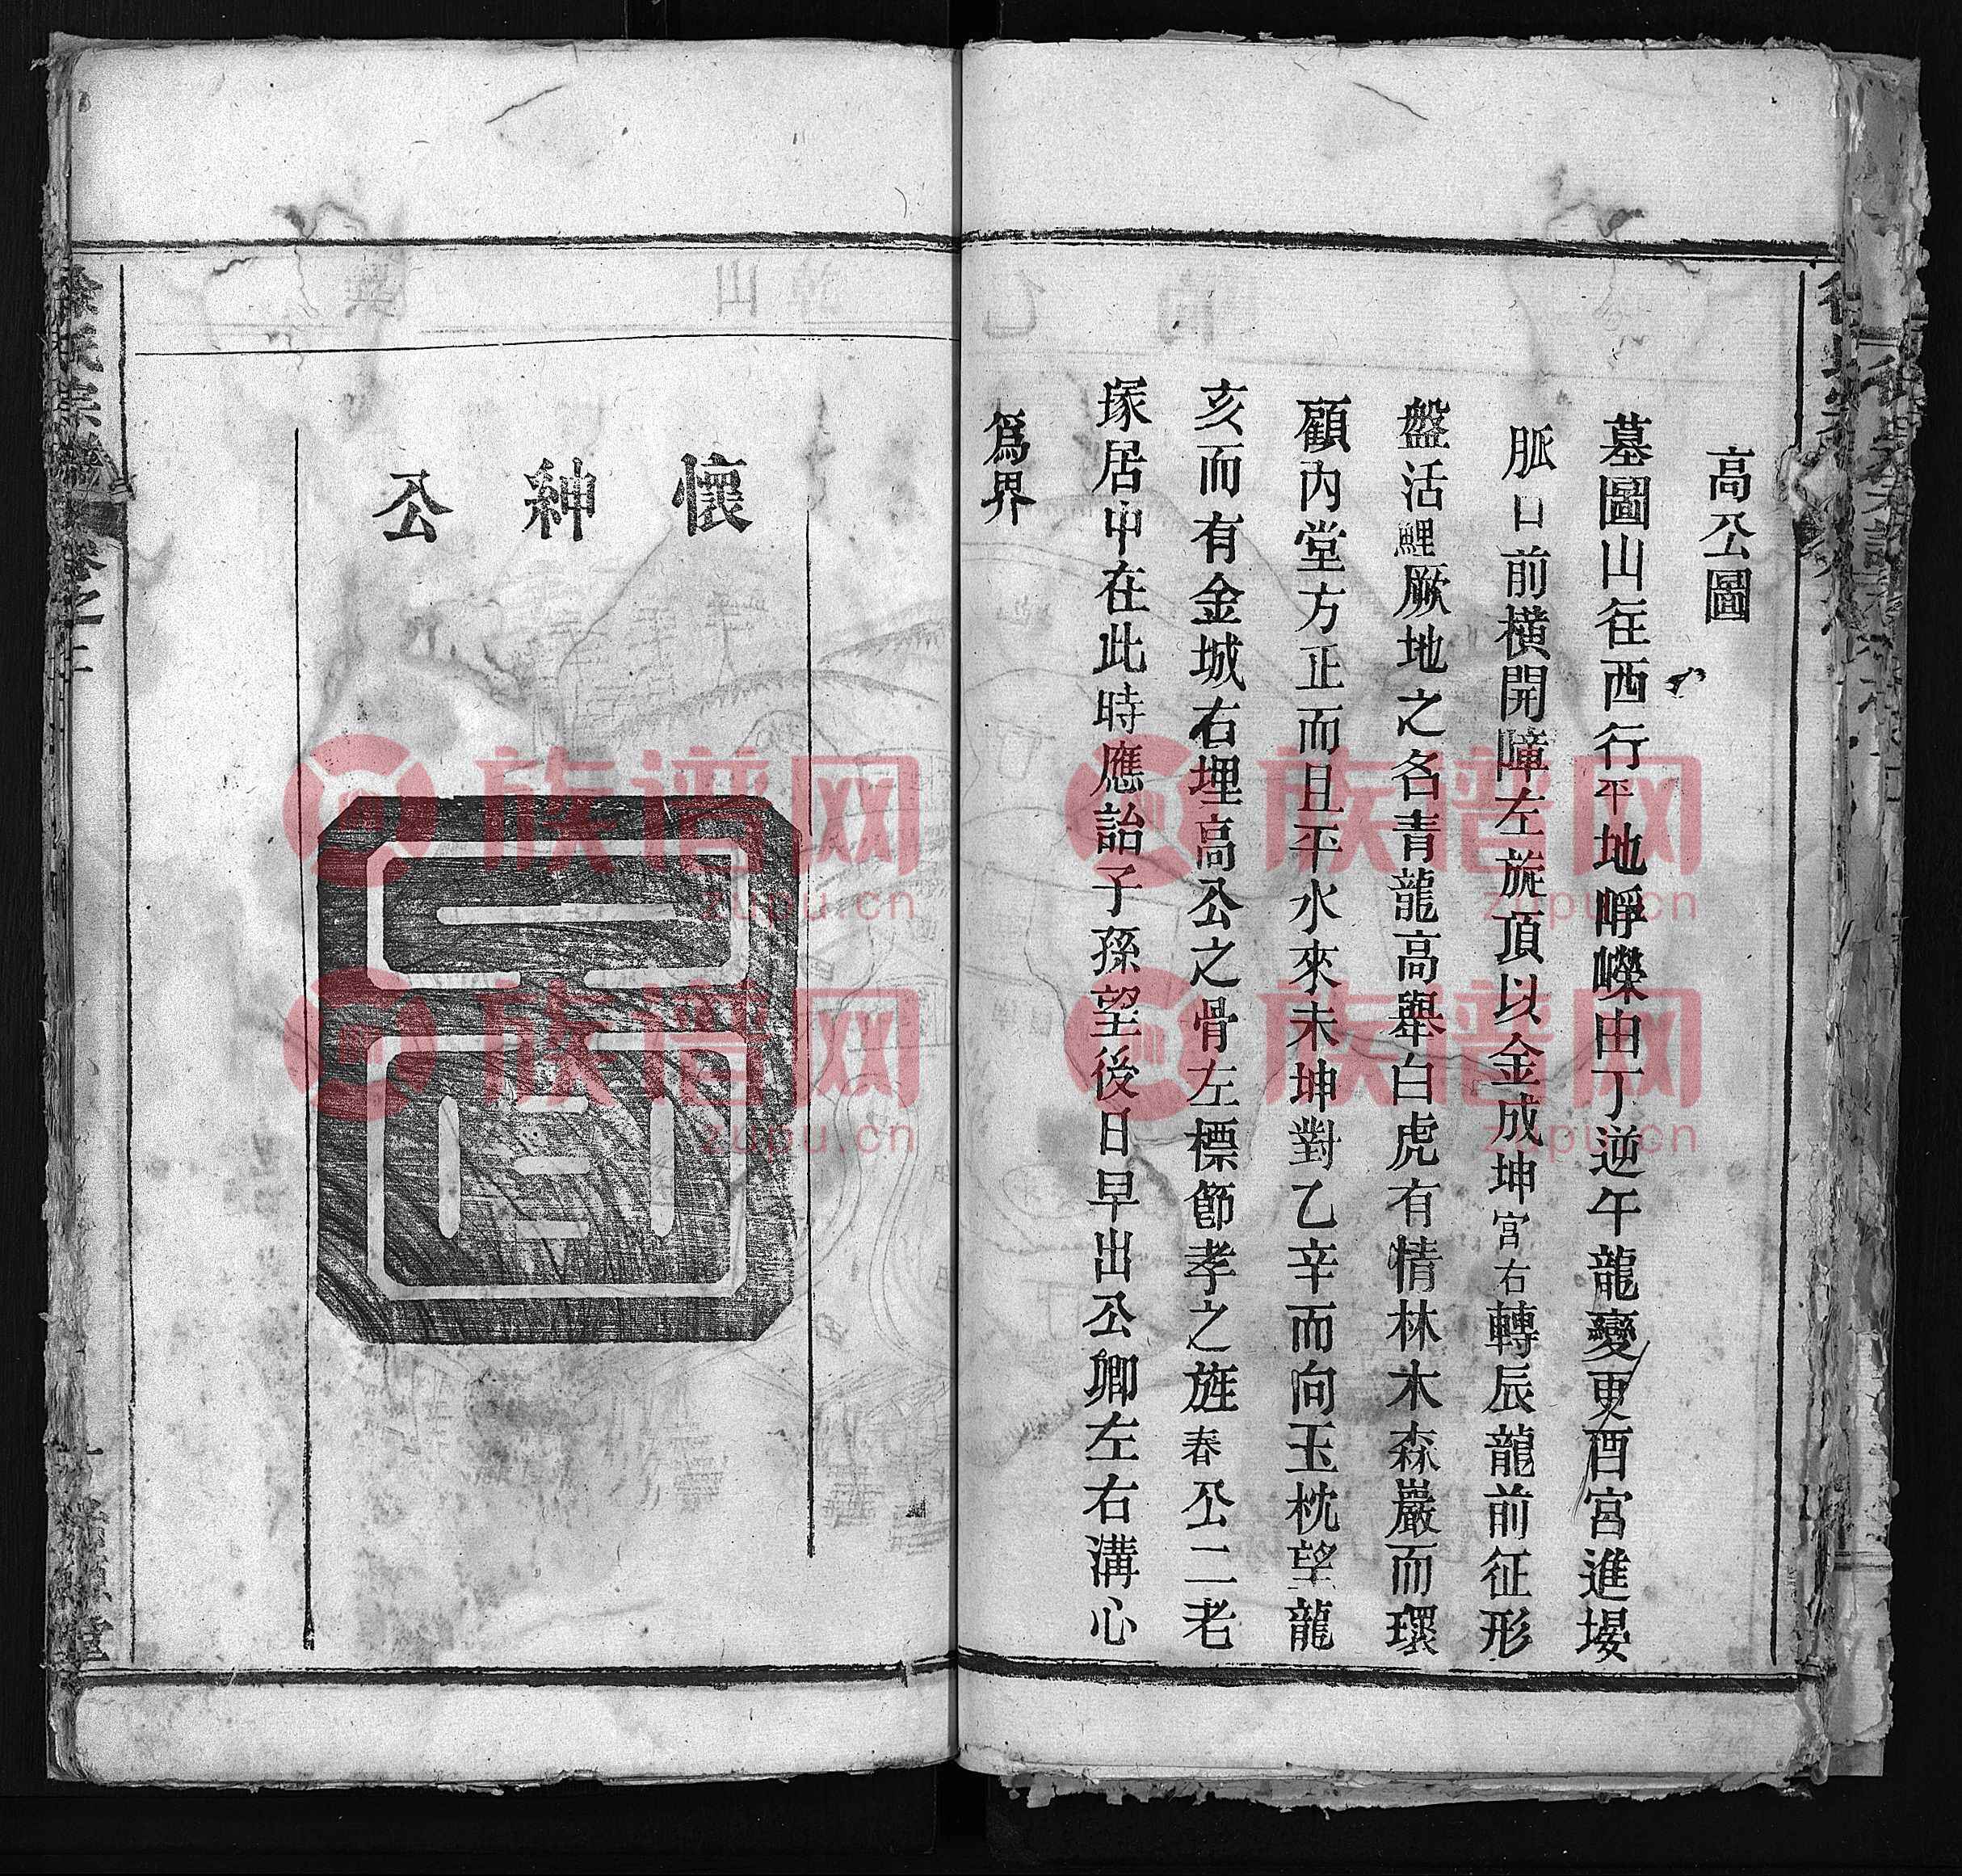 高公圖
墓圖山在西行平地崢嶸由丁逆午龍變更酉宮進塲
脈口前橫開障左旋頂以金成坤宮右轉辰龍前征形
盤活鯉厥地之名青龍高舉白虎有情林木森嚴而環
顧內堂方正而且平水來未坤對乙辛而向玉枕望龍
亥而有金城右埋高公之骨左標節孝之旌春公二老
塚居中在此時應詒子孫望後日早出公卿左右溝心
爲界
懷紳公
徐氏宗譜
卷之二
族谱网
zupu.cn
族谱网
zupu.cn
族谱网
zupu.cn
族谱网
zupu.cn